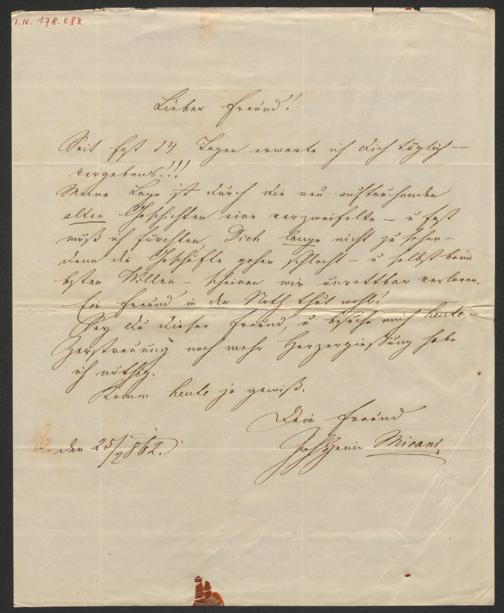 I.N. 178.688
Lieber Freund!
Seit fast 14 Tagen erwarte ich Dich täglich –
vergebens!!!
Meine Lage ist durch die neu auftauchenden
alten Geschichten eine verzweifelte – u fast
muß ich fürchten, Dich lange nicht zu sehen –
denn die Geschäfte gehen schlecht – u selbst beim
besten Willen – scheinen wir unrettbar verloren.
Ein Freund in der Noth thut wohl!
Sey du dieser Freund, u besuche mich heute –
Zerstreuung noch mehr Herzergießung habe
ich nöthig.
Komm heute ja gewiß.
Dein Freund
Mirani
den 25/ 862.